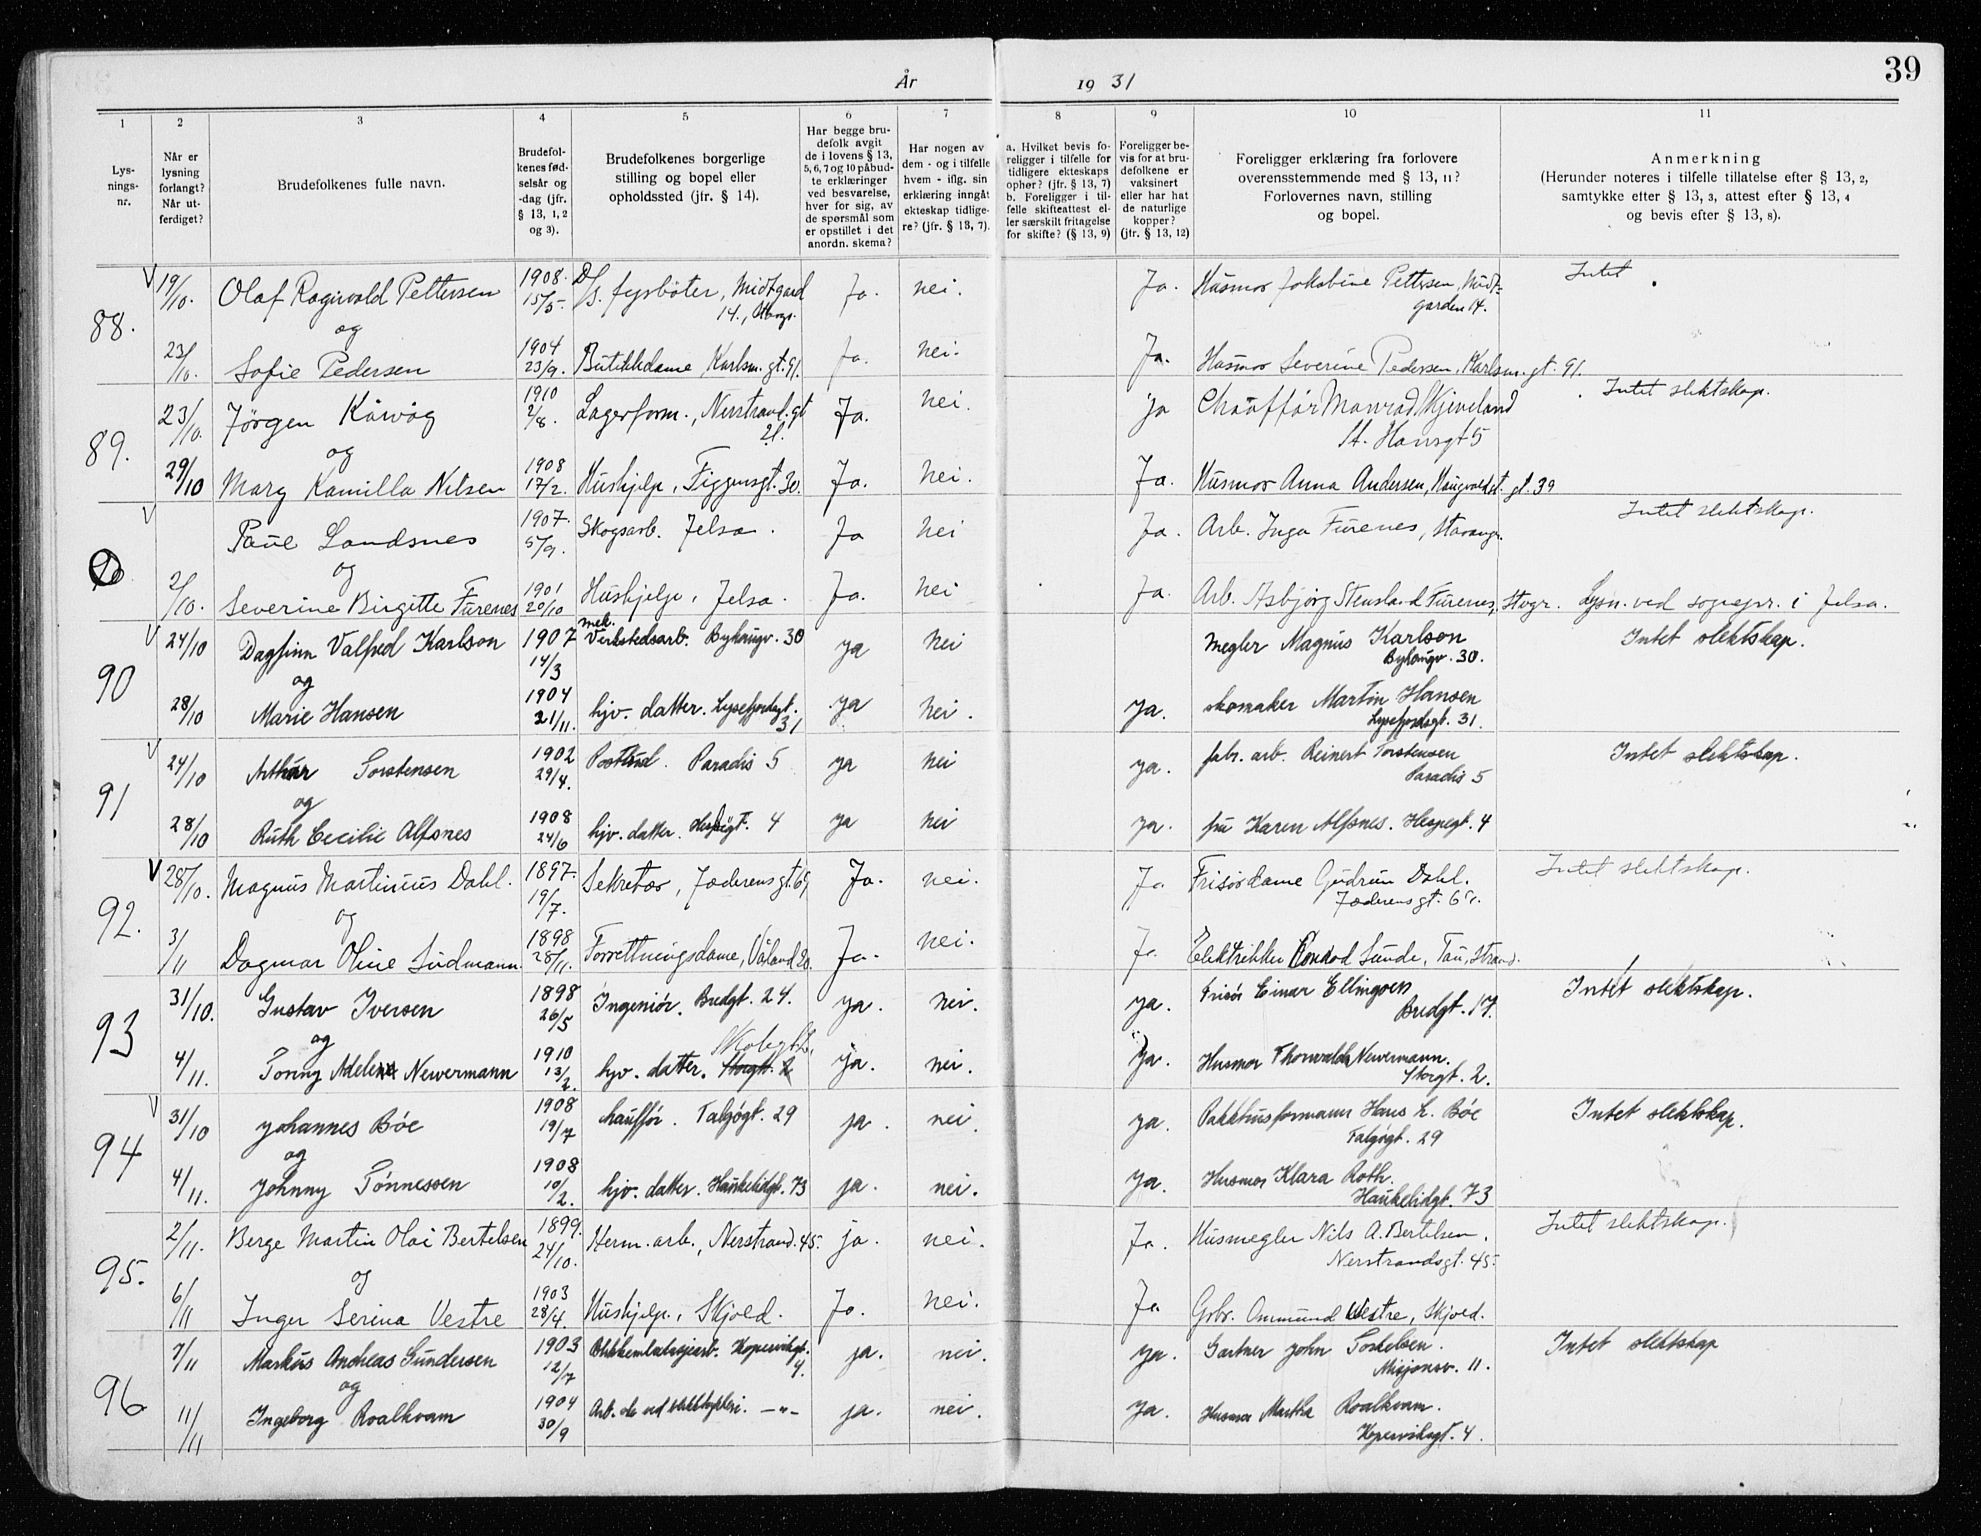 39
År 1931
1 2 3 4 5 6 7 8 9 10 11
Lysningsnr.
Når er lysning forlangt? Når utferdiget?
Brudefolkenes fulle navn.
Brudefolkenes fødselsår og -dag (jfr. § 13, 1, 2 og 3).
Brudefolkenes borgerlige stilling og bopel eller opholdssted (jfr. § 14).
Har begge brudefolk avgit de i lovens § 13, 5, 6, 7 og 10 påbudte erklæringer ved besvarelse, hver for sig, av de spørsmål som er opstillet i det anordn. skema?
Har nogen av dem - og i tilfelle hvem - iflg. sin erklæring inngåt ekteskap tidligere? (jfr. § 13, 7).
a. Hvilket bevis foreligger i tilfelle for tidligere ekteskaps ophør? (jfr. § 13, 7) b. Foreligger i tilfelle skifteattest eller særskilt fritagelse for skifte? (§ 13, 9)
Foreligger bevis for at brudefolkene er vaksinert eller har hat de naturlige kopper? (jfr. § 13, 12)
Foreligger erklæring fra forlovere overensstemmende med § 13, 11? Forlovernes navn, stilling og bopel.
Anmerkning (Herunder noteres i tilfelle tillatelse efter § 13, 2, samtykke efter § 13, 3, attest efter § 13, 4 og bevis efter § 13, 8).
88. 19/10. Olaf Ragnvald Pettersen 1908. 15/5- D/S. fyrbøter, Midtgard 14., Ja. nei. Ja. Husmor Pettersen, Midtgarden 14. Intet
og
23/10. Sofie Pedersen 1904 23/9. Butikkdame Karlsm. gt. 91. Ja. nei. Ja. Husmor Severine Pedersen, Karlsm. gt. 91.
89. 23/10. Jørgen Kårvåg 1910 2/8. Lagerform., Nerstrand. gt 21. Ja. nei. ja Chauffør Monrad Kjeveland St. Hansgt 5 Intet slektskap.
og
29/10 Mary Kamilla Nilsen 1908 17/2. Hushjelp, Figgensgt. 30. Ja. nei. Ja. Husmor Anna Andersen, Haugvaldst. gt. 39
Paul Landsnes 1907. 5/9. Skogsarb. Jelsa. Ja nei Ja. Arb. Inga Furenes, Stavanger. Intet slektskap.
og
2/10. Severine Birgitte Furenes 1901 20/10 Hushjelp, Jelsa. Ja. nei Ja. Arb. Asbjørg Stensland Furenes, Stvgr. Lysn. ved sognepr. i Jelsa.
90 24/10 Dagfinn Valfred Karlson 1907 14/3 mek. Verkstedsarb. Byhaugv. 30 ya nei megler Magnus Karlson Byhaugv. 30. Intet slektskap.
og
28/10 Marie Hansen 1904 21/11. hjv. datter. Lysefjordsgt. 31 ya nei. ya. skomaker Martin Hansen Lysefjordsgt. 31.
91 24/10 Arthur Torstensen 1902 29/4. Postbud. Paradis 5 ya nei ya. fabr. arb. Reinert Torstensen Paradis 5 Intet slektskap.
og
28/10 Ruth Cecilie Alfsnes 1908 24/6 hjv. datter. 4 ya nei ya. fru Karen Alfsnes. Hespegt. 4
92. 28/10. Magnus Martinius Dahl. 1897. 19/7. Sekretær, Jæderens gt. 65 Ja. nei. Ja Frisørdame Gudrun Dahl. Jæderens gt. 65. Intet slektskap.
og
3/11 Dagmar Oline Sudmann. 1898 28/11. Forretningsdame, Våland 20. Ja. nei. Ja Elektriker Konrad Sunde, Tau, Strand.
93 31/10. Gustav Iversen 1898 26/5 Ingeniør. Bredgt. 24. ya. nei. ya. Frisør Einar Ellingsen Bredgt. 17. Intet slektskap.
og
4/11. Tonny Adelena Newermann 1910 13/2. hjv. datter. Storgt. 2 ya. nei. ya. Husmor Thorvalda Newermann. Storgt. 2.
94 31/10 Johannes Bøe 1908 19/7 chauffør. Talgøgt. 29 ja. nei. ya. Pakkhusformann Hans L. Bøe Talgøgt. 29 Intet slektskap.
og
4/11. Johnny Tønnessen 1908 10/2. hjv. datter. Haukelidgt. 73 ja. nei. ya. Husmor Klara Roth. Haukelidgt. 73
95. 2/11. Berge Martin Olai Bertelsen 1899. 24/10. Herm. arb., Nerstrand. 45. ja. nei. Ja. Husmegler Nils A. Bertelsen. Nerstrandsgt. 45. Intet slektskap.
og
6/11 Inger Serina Vestre 1903 28/4. Hushjelp, Skjold. Ja. nei. Ja Grbr. Ommund Vestre, Skjold.
96 7/11 Markus Andreas Gundersen 1903 12/7 Kopervikgt. 4. ja. nei. ya. Gartner John Torkelsen. Misjonsv. 11. Intet slektskap
og
11/11 Ingeborg Roalkvam 1904 30/9 -"- ja. nei. ya. Husmor Martha Roalkvam. Kopervikgt. 4.